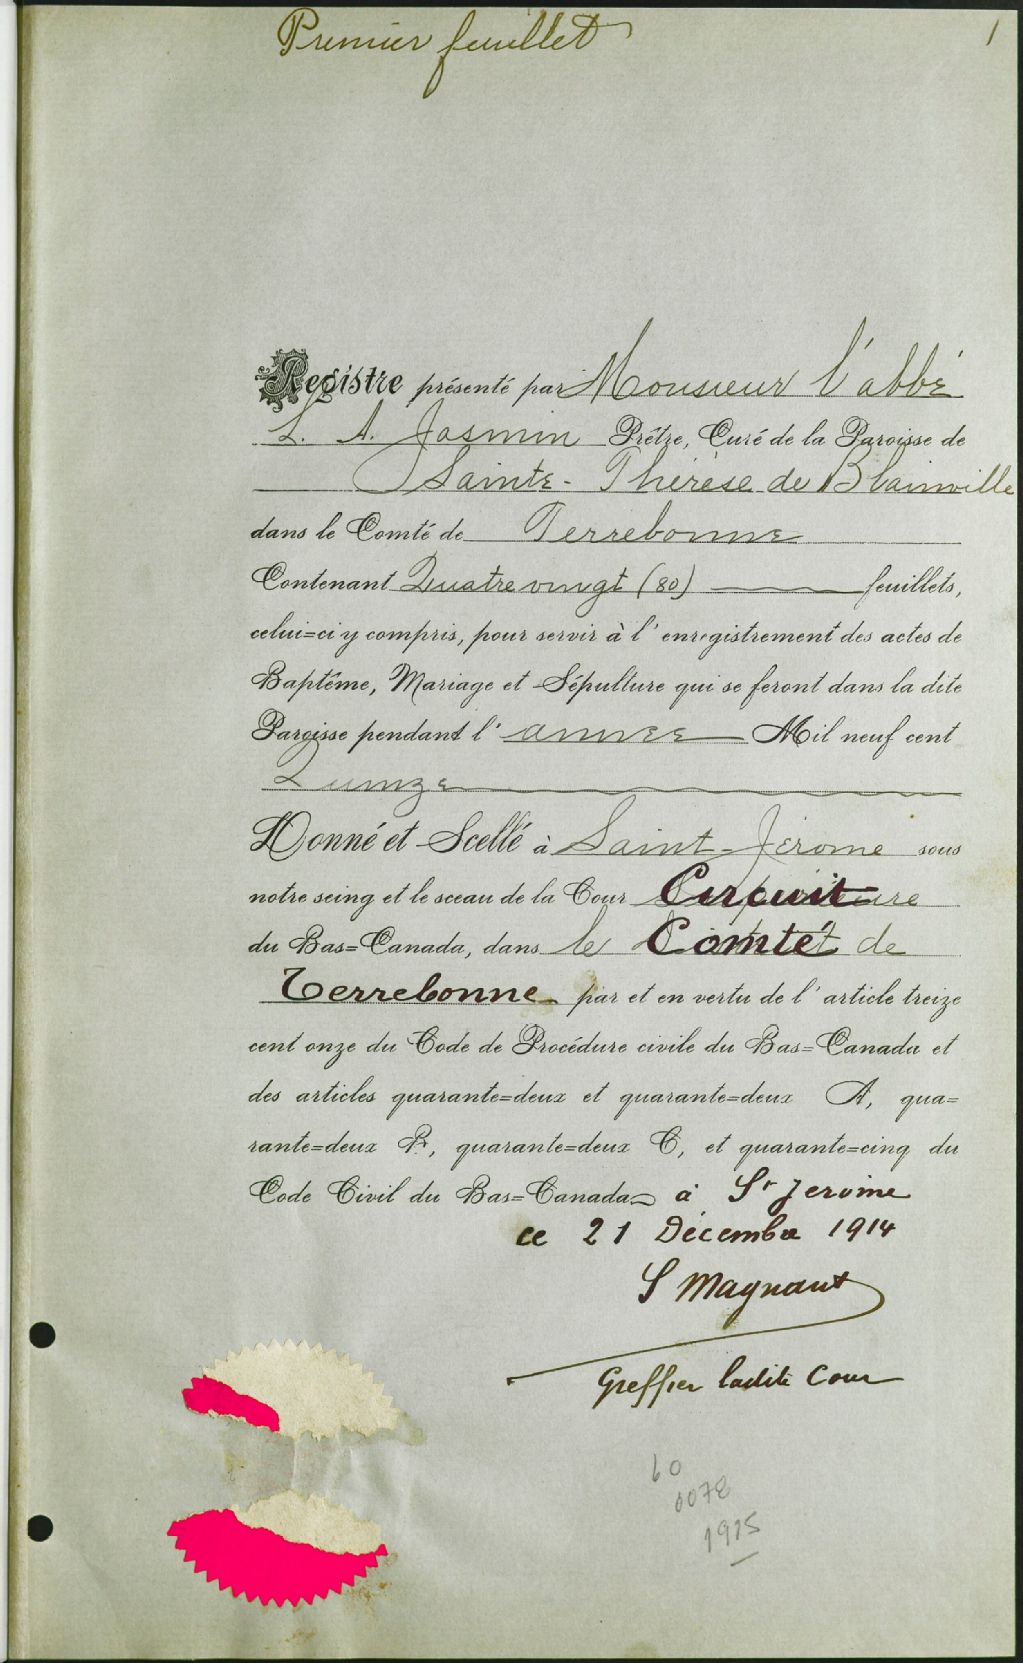 Premier feuillet
1
Registre présenté par Monsieur l'abbé
L. A. Jasmin Prêtre, Curé de la Paroisse de
Sainte-Thérèse de Blainville
dans le Comté de Terrebonne
Contenant Quatre vingt (80) feuillets,
celui=ci y compris, pour servir à l'enregistrement des actes de
Baptême, Mariage et Sépulture qui se feront dans la dite
Paroisse pendant l'année Mil neuf cent
Quinze
Donné et Scellé à Saint-Jérome sous
notre seing et le sceau de la Cour Circuit
du Bas=Canada, dans le Comté de
Terrebonne par et en vertu de l'article treize
cent onze du Code de Procédure civile du Bas=Canada et
des articles quarante=deux et quarante=deux A, qua=
rante=deux B, quarante=deux C, et quarante=cinq du
Code Civil du Bas=Canada à St Jerome
ce 21 Décembre 1914
S Magnant
Greffier ladite Cour
60
0078
1915